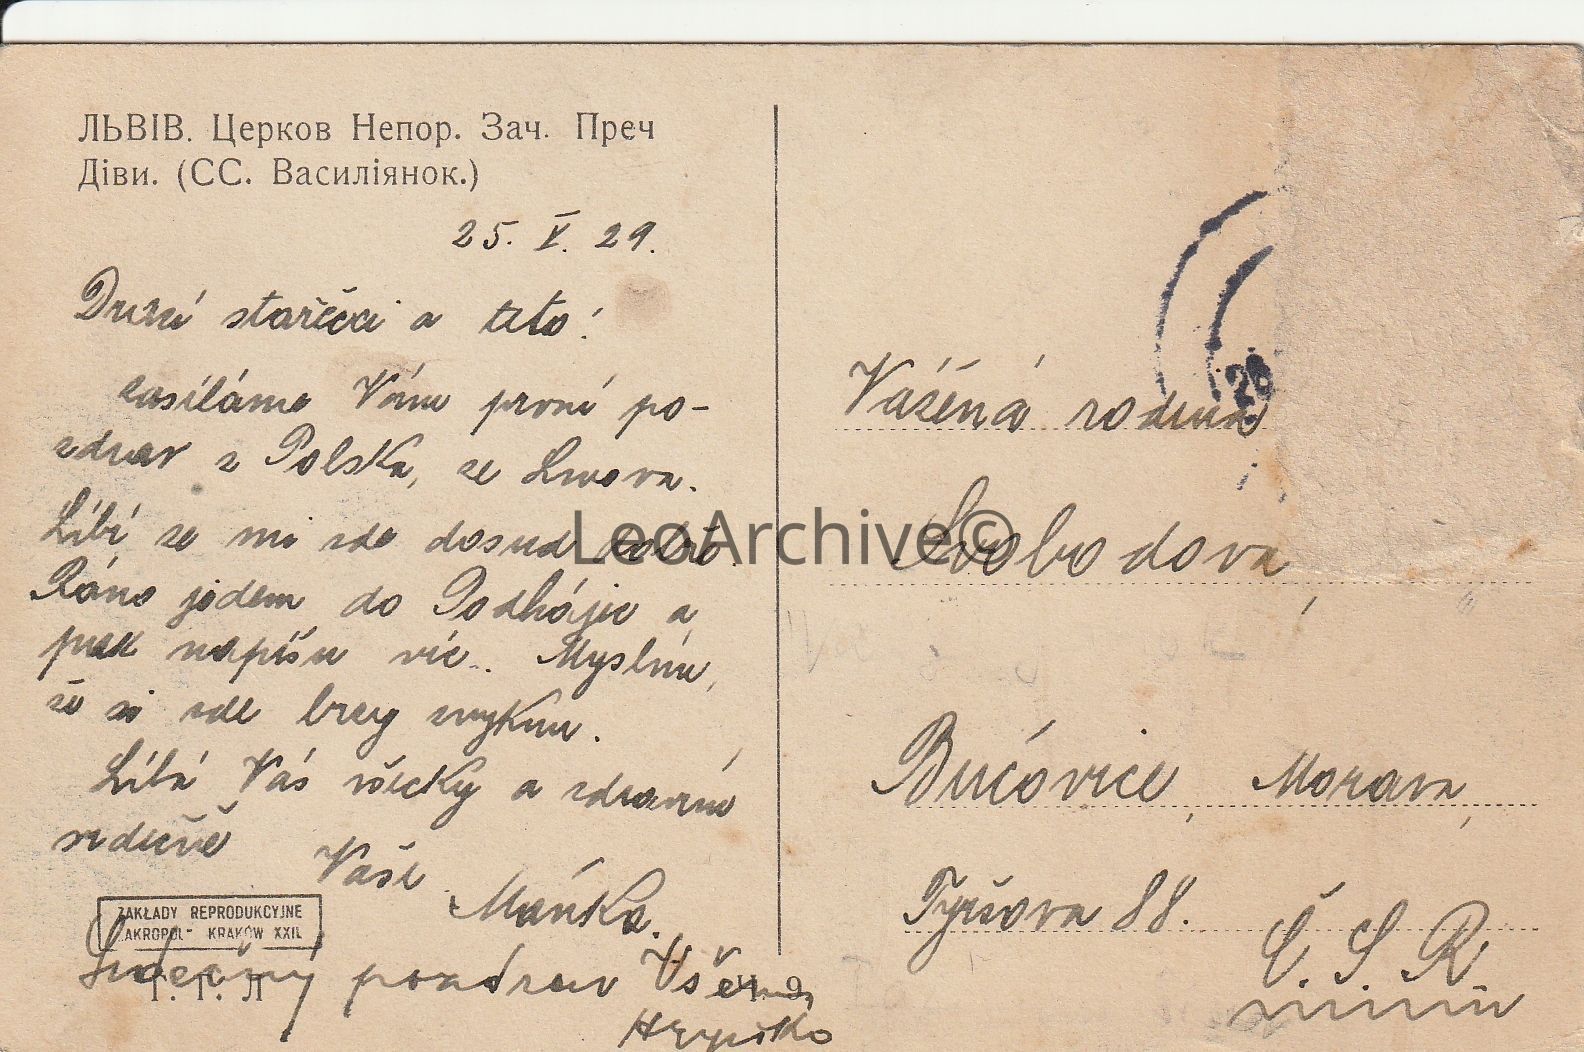 ЛЬВІВ. Церков Непор. Зач. Преч
Діви. (СС. Василіянок.)
25. V. 29.
Druzí stařéčci a teto!
zasíláme Vám první po-
zdrav z Polska, ze Lwova.
Líbí se mi zde dosud dobře.
Ráno jedem do Podhájic a
pak napíšu víc. Myslím,
že si zde brzy zvyknu.
Líbá Vás všecky a zdravím
srdečně Vaše
Mańka.
Srdečný pozdrav Všem
ZAKŁADY REPRODUKCYJNE
"AKROPOL" KRAKÓW XXII.
Г. Г. Л
Ч. 9.
Vážená rodina
Svobodova,
Bučovice, Morava,
Tyršova 88.
Č. S. R.
29
LeoArchive©